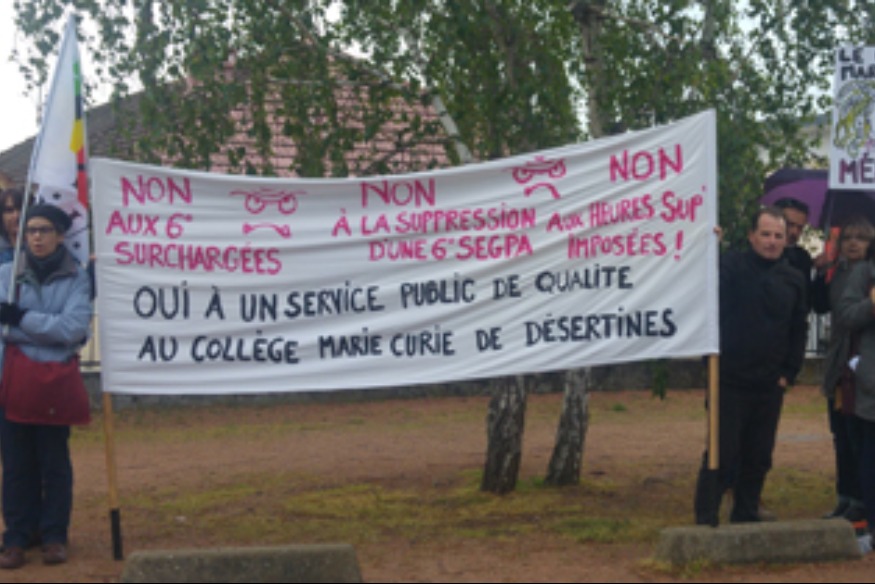 NON
AUX 6°
SURCHARGÉES
NON
À LA SUPPRESSION
D'UNE 6° SEGPA
NON
AUX HEURES SUP'
IMPOSÉES !
OUI À UN SERVICE PUBLIC DE QUALITE
AU COLLÈGE MARIE CURIE DE DÉSERTINES
LE
MAR
MÉ